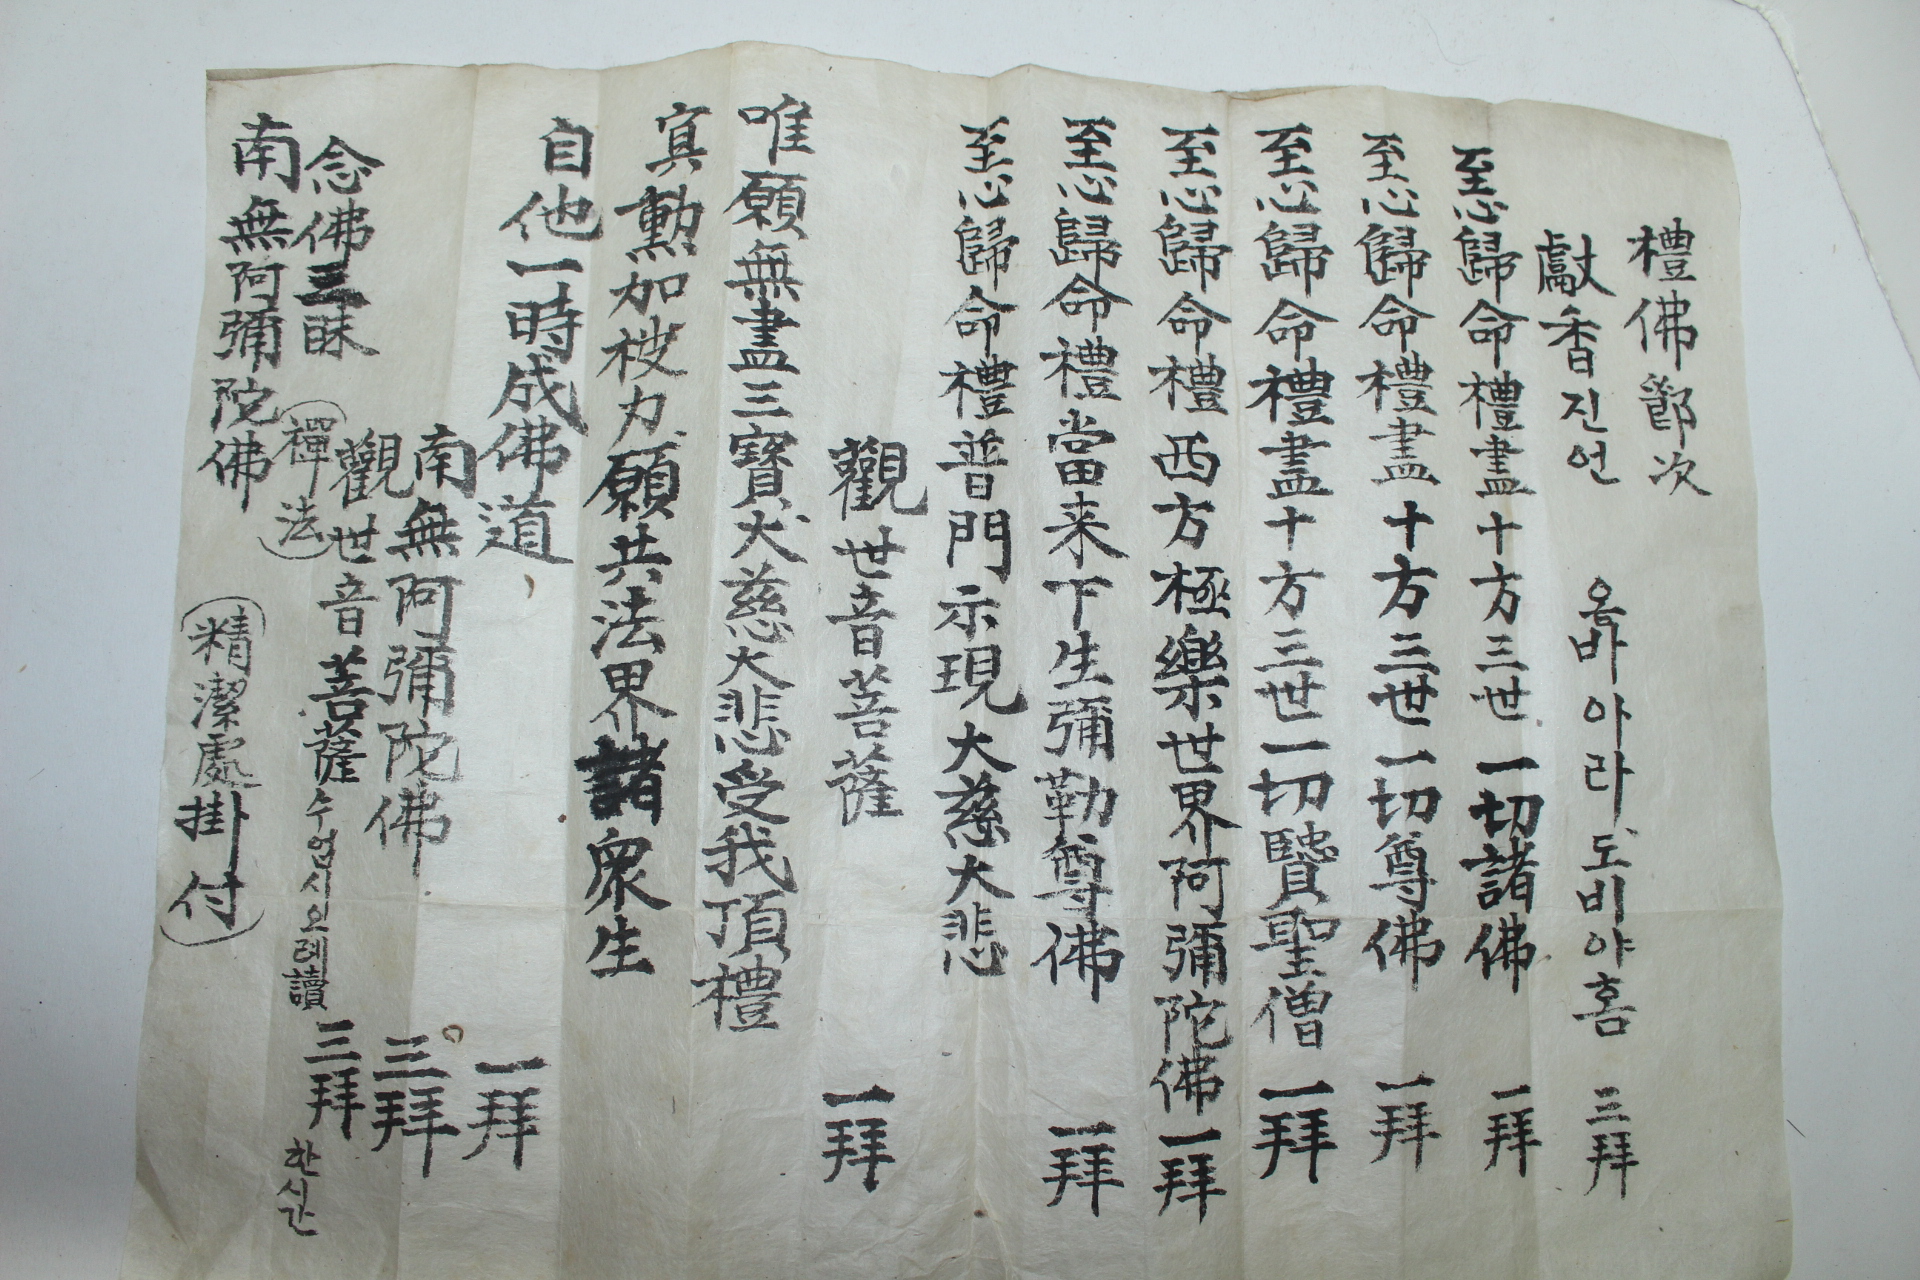 禮佛節次
獻香진언 옴바아라도비야홈 三拜
至心歸命禮盡十方三世一切諸佛 一拜
至心歸命禮盡十方三世一切尊佛 一拜
至心歸命禮盡十方三世一切賢聖僧 一拜
至心歸命禮西方極樂世界阿彌陀佛 一拜
至心歸命禮當来下生彌勒尊佛 一拜
至心歸命禮普門示現大慈大悲
觀世音菩薩 一拜
唯願無盡三寶大慈大悲受我頂禮
冥勳加被力願共法界諸衆生
自他一時成佛道 一拜
南無阿彌陀佛 三拜
觀世音菩薩 수업시오래讀 三拜 한시간
念佛三昧 (禪法)
南無阿彌陀佛 (精潔處掛付)